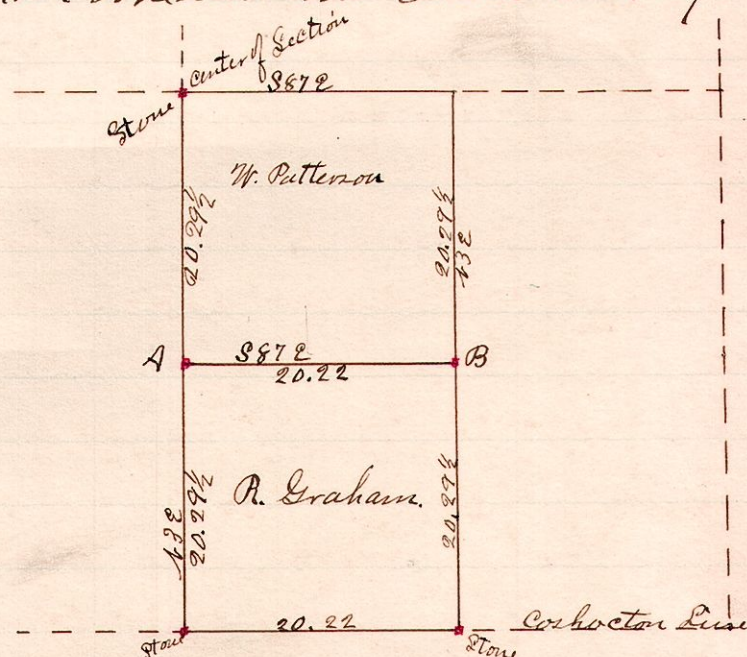 center of Section
Stone
S87E
W. Patterson
20.29½
20.29½
N3E
A
S87E
B
20.22
R. Graham.
N3E
20.29½
20.29½
20.22
Coshocton Line
Stone
Stone